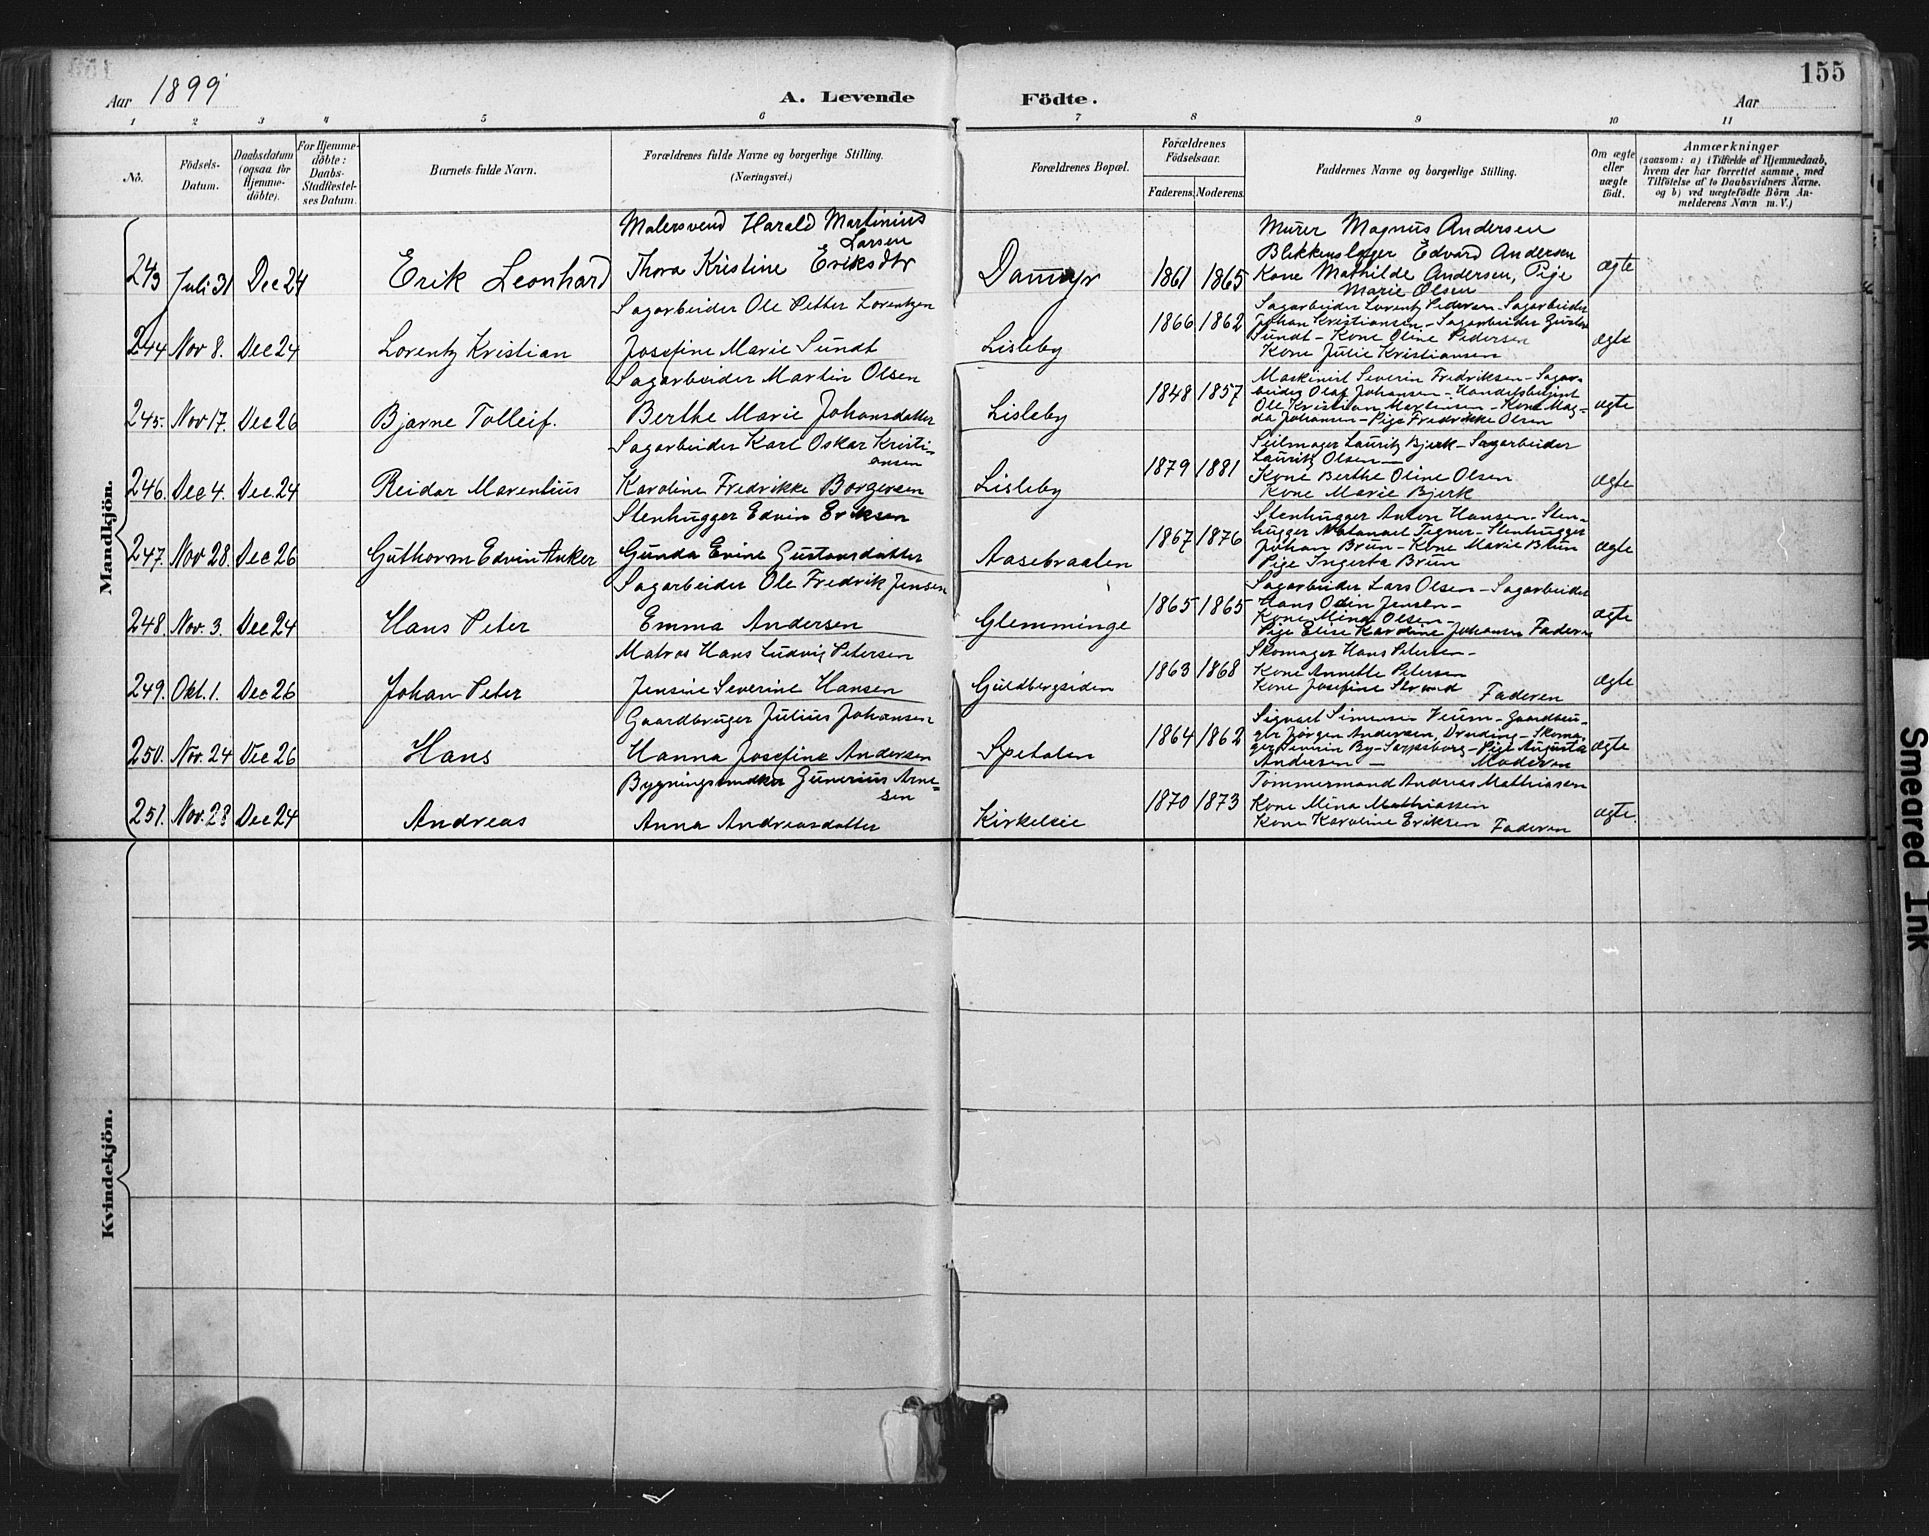 155
Aar 1899
A. Levende Födte.
Aar
1 2 3 4 5 6 7 8 9 10 11
Nô.
Födsels-Datum.
Daabsdatum (ogsaa for Hjemme-döbte).
For Hjemme-döbte: Daabs-Stadfæstel-ses Datum.
Barnets fulde Navn.
Forældrenes fulde Navne og borgerlige Stilling.
(Næringsvei.)
Forældrenes Bopæl.
Forældrenes Födselsaar.
Faderens. Moderens.
Faddernes Navne og borgerlige Stilling.
Om ægte eller uægte födt.
Anmærkninger
(saasom: a) i Tilfælde af Hjemmedaab,
hvem der har forrettet samme, med
Tilföielse af to Daabsvidners Navne,
og b) ved uægtefödte Börn An-
melderens Navn m. V.)
Mandkjön.
Malersvend Harald Martinius
Larsen
243 Juli 31 Dec 24 Erik Leonhard Thora Kristine Eriksdtr Dammyr 1861 1865
Murer Magnus Andersen
Blikkenslager Edvard Andersen
Kone Mathilde Andersen, Pige
Marie Olsen
ægte
Sagarbeider Ole Petter Lorentzen
244 Nov 8. Dec 24 Lorentz Kristian Josefine Marie Sundt Lisleby 1866 1862
Sagarbeider Lorentz Pedersen Sagarbeider
Johan Kristiansen - Sagarbeider
Sundt - Kone Oline Pedersen
Kone Julie Kristiansen
ægte
Sagarbeider Martin Olsen
245. Nov 17. Dec 26 Bjarne Tolleif. Berthe Marie Johansdatter Lisleby 1848 1857
Maskinist Severin Fredriksen - Sagar-
beider Olaf Johansen - Handelsbetjent
Ole Kristian Martinsen - Kone Mag-
da Johansen - Pige Fredrikke Olsen
ægte
Sagarbeider Karl Oskar Kristi-
ansen
246. Dec 4. Dec 24 Reidar Marentius Karoline Fredrikke Borgersen Lisleby 1879 1881
Seilmager Lauritz Bjerk - Sagarbeider
Lauritz Olsen -
Kone Berthe Oline Olsen
Kone Marie Bjerk
ægte
Stenhugger Edvin Eriksen
247. Nov 28. Dec 26 Guthorm Edvin Anker Gunda Evine Gustavsdatter Aasebraaten 1867 1876
Stenhugger Anton Hansen - Sten-
hugger Natanael Tegner - Stenhugger
Johan Brun - Kone Marie Brun
Pige Ingerta Brun
ægte
Sagarbeider Ole Fredrik Jensen
248. Nov. 3. Dec 24 Hans Peter Emma Andersen Glemminge 1865 1865
Sagarbeider Lars Olsen - Sagarbeider
Hans Oden Jensen -
Kone Mina Olsen -
Pige Elise Karoline Johansen Faderen
ægte
Matros Hans Ludvig Petersen
249. Okt. 1. Dec 26 Johan Peter Jensine Severine Hansen Guldbergsiden 1863 1868
Skomager Hans Petersen -
Kone Annette Petersen
Kone Josefine Strand Faderen
ægte
Gaardbruger Julius Johansen
250. Nov. 24 Dec 26 Hans Hanna Josefine Andersen Spetalen 1864 1862
Sigvart Simensen Veum - Gaardbru-
ger Jörgen Andersen, - Skoma-
ger Severin By - Sarpsborg - Pige Augusta
Andersen - Moderen
ægte
Bygningssnedker Gunerius Arne-
sen
251. Nov. 28 Dec 24 Andreas Anna Andreasdatter Kirkeleie 1870 1873
Tömmermand Andreas Mathiassen
Kone Mina Mathiassen
Kone Karoline Eriksen Faderen
ægte.
Kvindekjön.
Smeared Ink